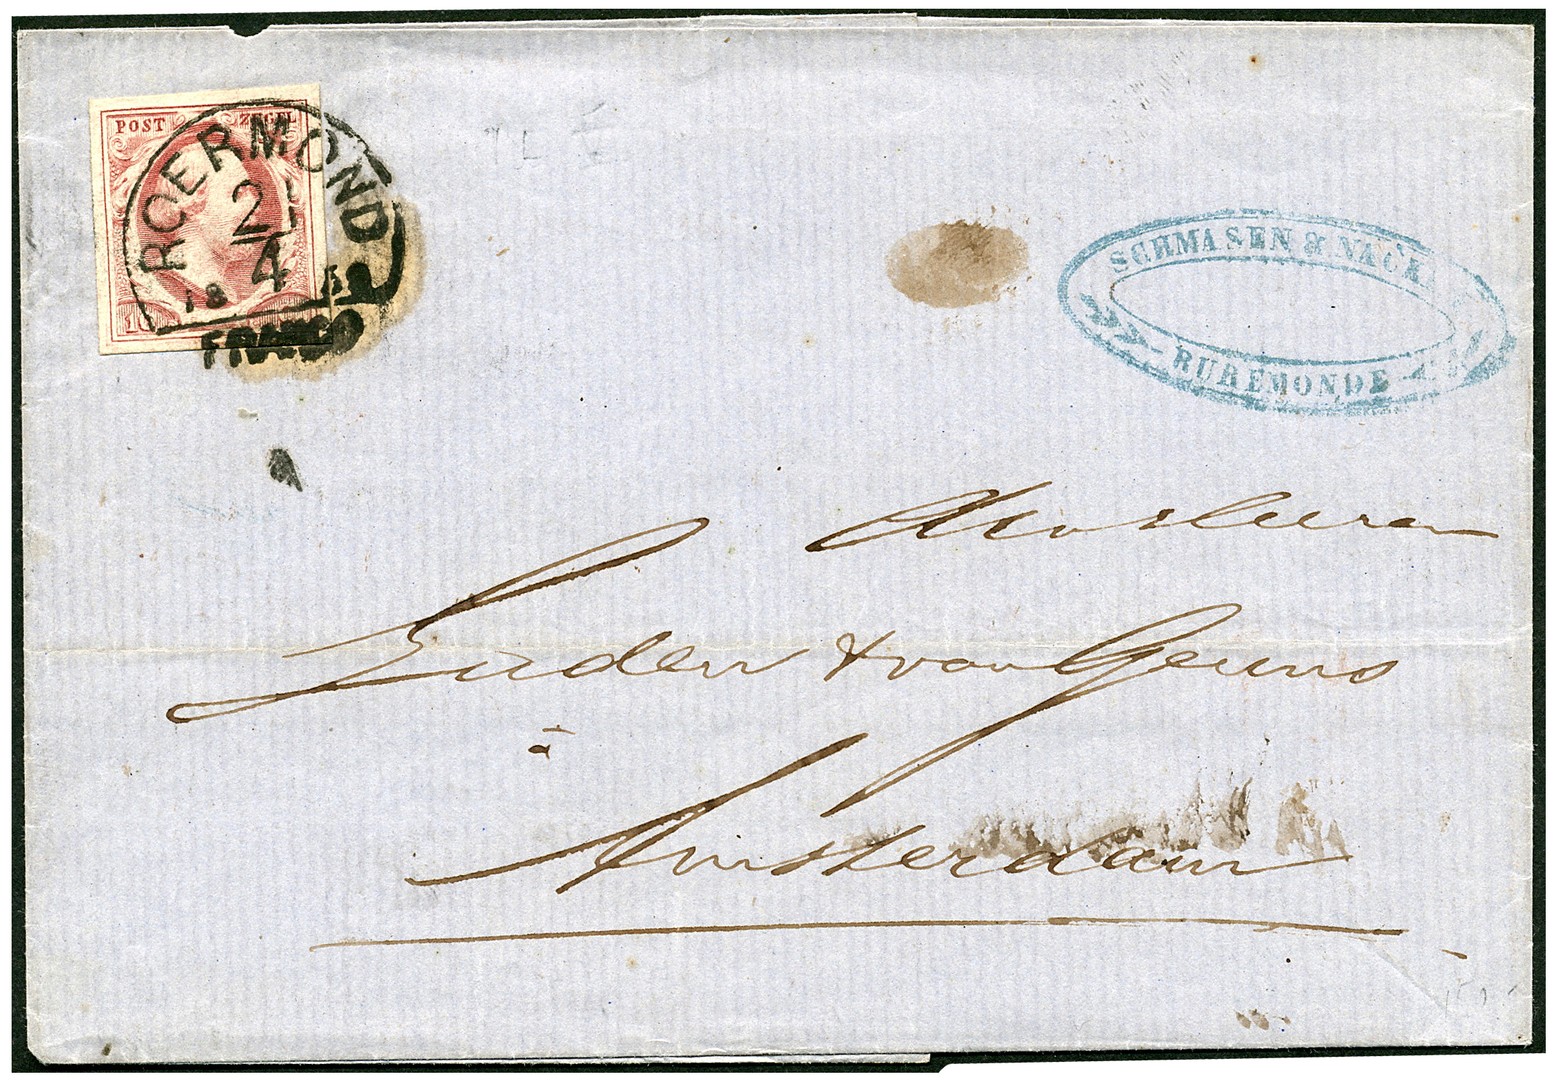 POST ZEGEL
ROERMOND
2
4
18
FRANCO
SCHMASEN & NACK
RUREMONDE
Suden & van Geuns
à
Amsterdam